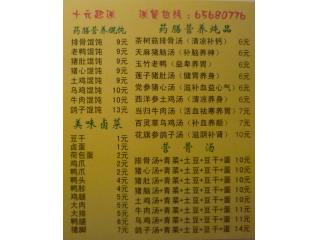 十元起送 送餐热线：65680776
药膳营养馄饨
排骨馄饨 9元
老鸭馄饨 9元
猪肚馄饨 9元
猪心馄饨 9元
土鸡馄饨 9元
乌鸡馄饨 10元
牛肉馄饨 10元
鸽子馄饨 13元
美味卤菜
豆干 1元
卤蛋 1元
荷包蛋 2元
鸡爪 2元
鸭爪 2元
鸭头 4元
鸭胗 4元
鸡腿 5元
大肉 5元
大排 5元
鸭腿 6元
猪脚 7元
药膳营养炖品
茶树菇排骨汤（清凉补钙） 6元
天麻猪脑汤（补脑养神） 6元
玉竹老鸭（益卑养胃） 6元
莲子猪肚汤（健胃养身） 6元
党参猪心汤（滋补益心气） 6元
西洋参土鸡汤（清凉养身） 6元
当归牛肉汤（活血祛寒养胃） 7元
百灵草乌鸡汤（补血养颜） 7元
花旗参鸽子汤（滋阴补肾） 10元
营骨汤
排骨汤+青菜+土豆+豆干+蛋 10元
猪心汤+青菜+土豆+豆干+蛋 10元
猪肚汤+青菜+土豆+豆干+蛋 10元
老鸭汤+青菜+土豆+豆干+蛋 10元
土鸡汤+青菜+土豆+豆干+蛋 10元
牛肉汤+青菜+土豆+豆干+蛋 11元
乌鸡汤+青菜+土豆+豆干+蛋 11元
鸽子汤+青菜+土豆+豆干+蛋 14元